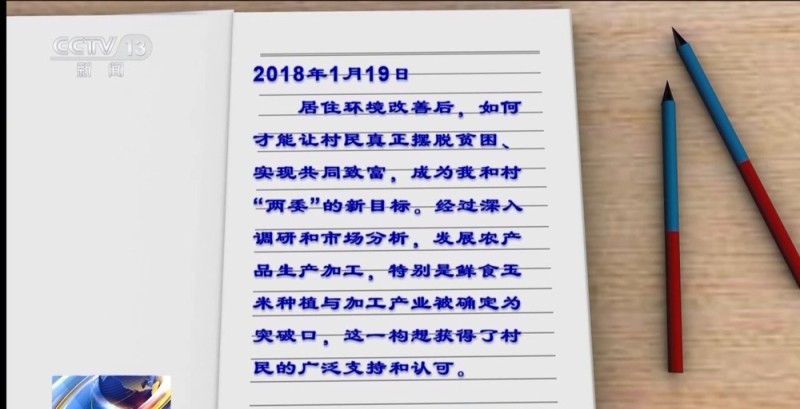 CCTV 13
新闻
2018年1月19日
居住环境改善后，如何
才能让村民真正摆脱贫困、
实现共同致富，成为我和村
“两委”的新目标。经过深入
调研和市场分析，发展农产
品生产加工，特别是鲜食玉
米种植与加工产业被确定为
突破口，这一构想获得了村
民的广泛支持和认可。